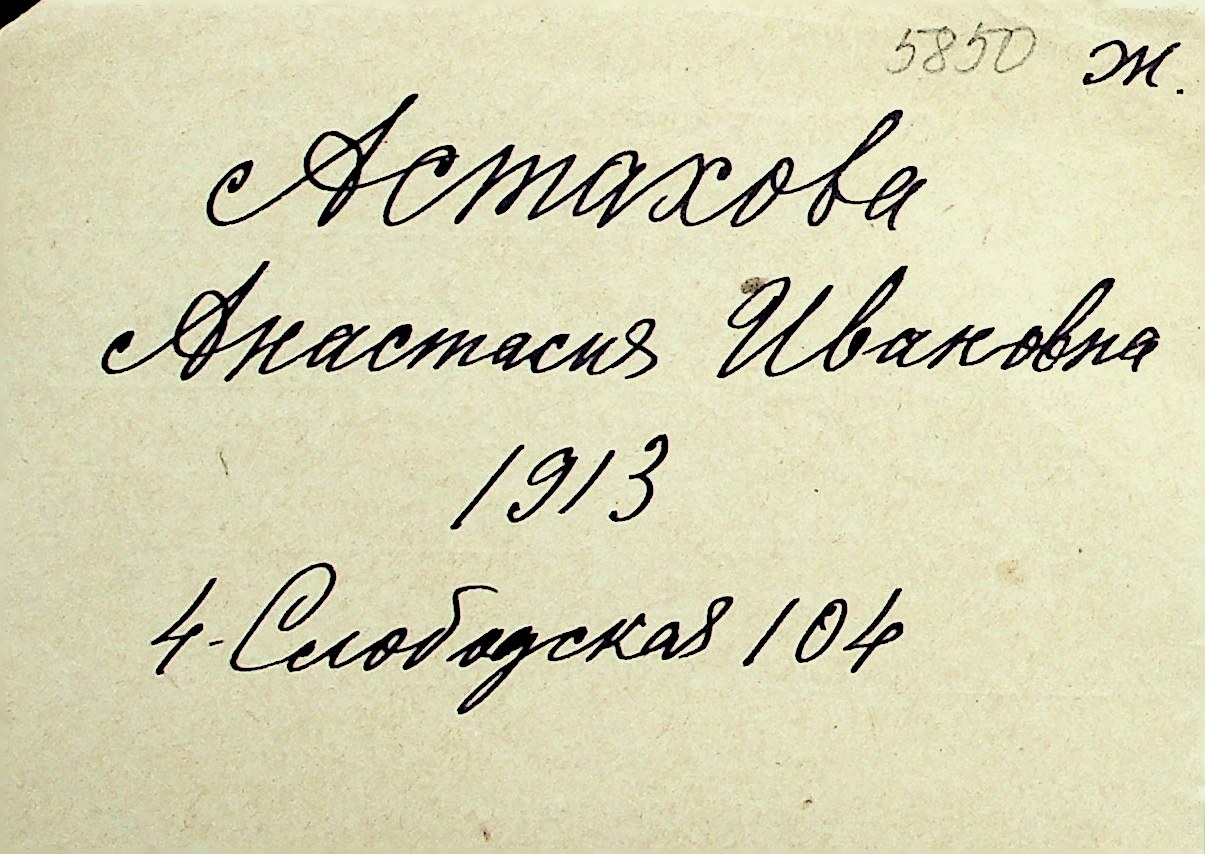 5850 ж.
Астахова
Анастасия Ивановна
1913
4-Слободская 104